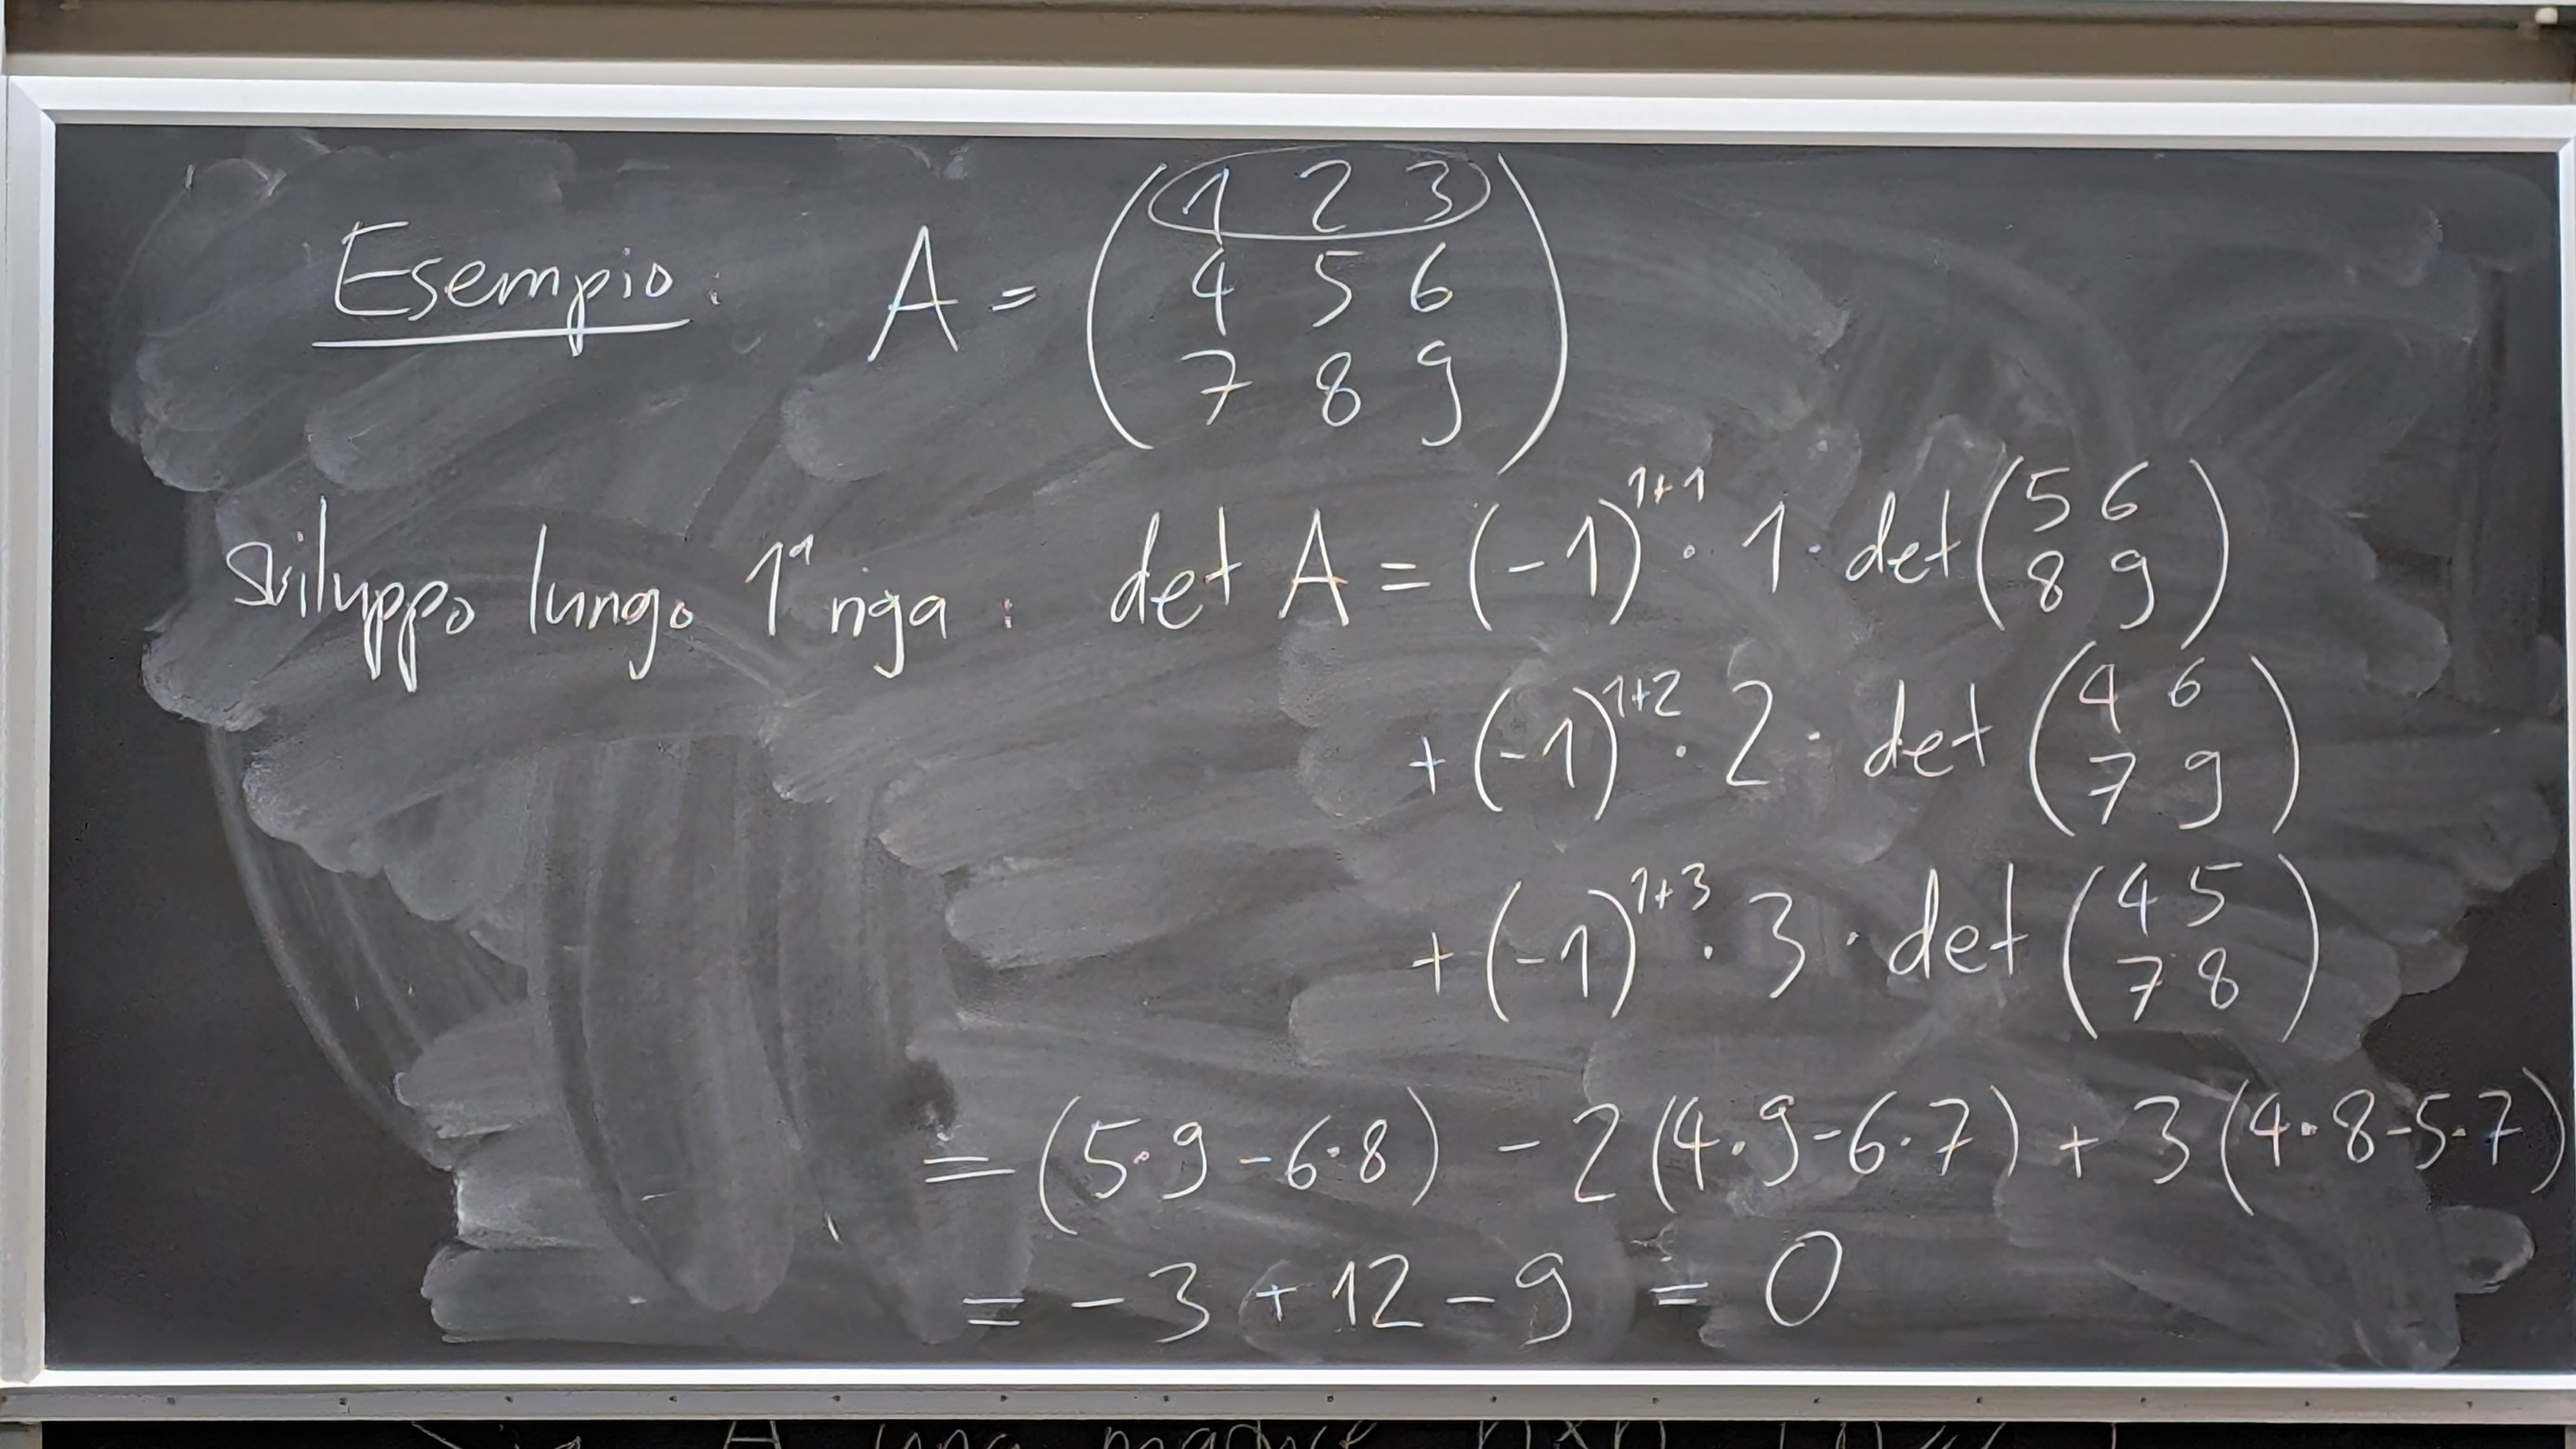 Esempio: A = ( 1 2 3
4 5 6
7 8 9 )
Sviluppo lungo 1ª riga: det A = (-1)^{1+1} · 1 · det ( 5 6
8 9 )
+ (-1)^{1+2} · 2 · det ( 4 6
7 9 )
+ (-1)^{1+3} · 3 · det ( 4 5
7 8 )
= (5·9 - 6·8) - 2(4·9 - 6·7) + 3(4·8 - 5·7)
= -3 + 12 - 9 = 0
A una matrice n×n